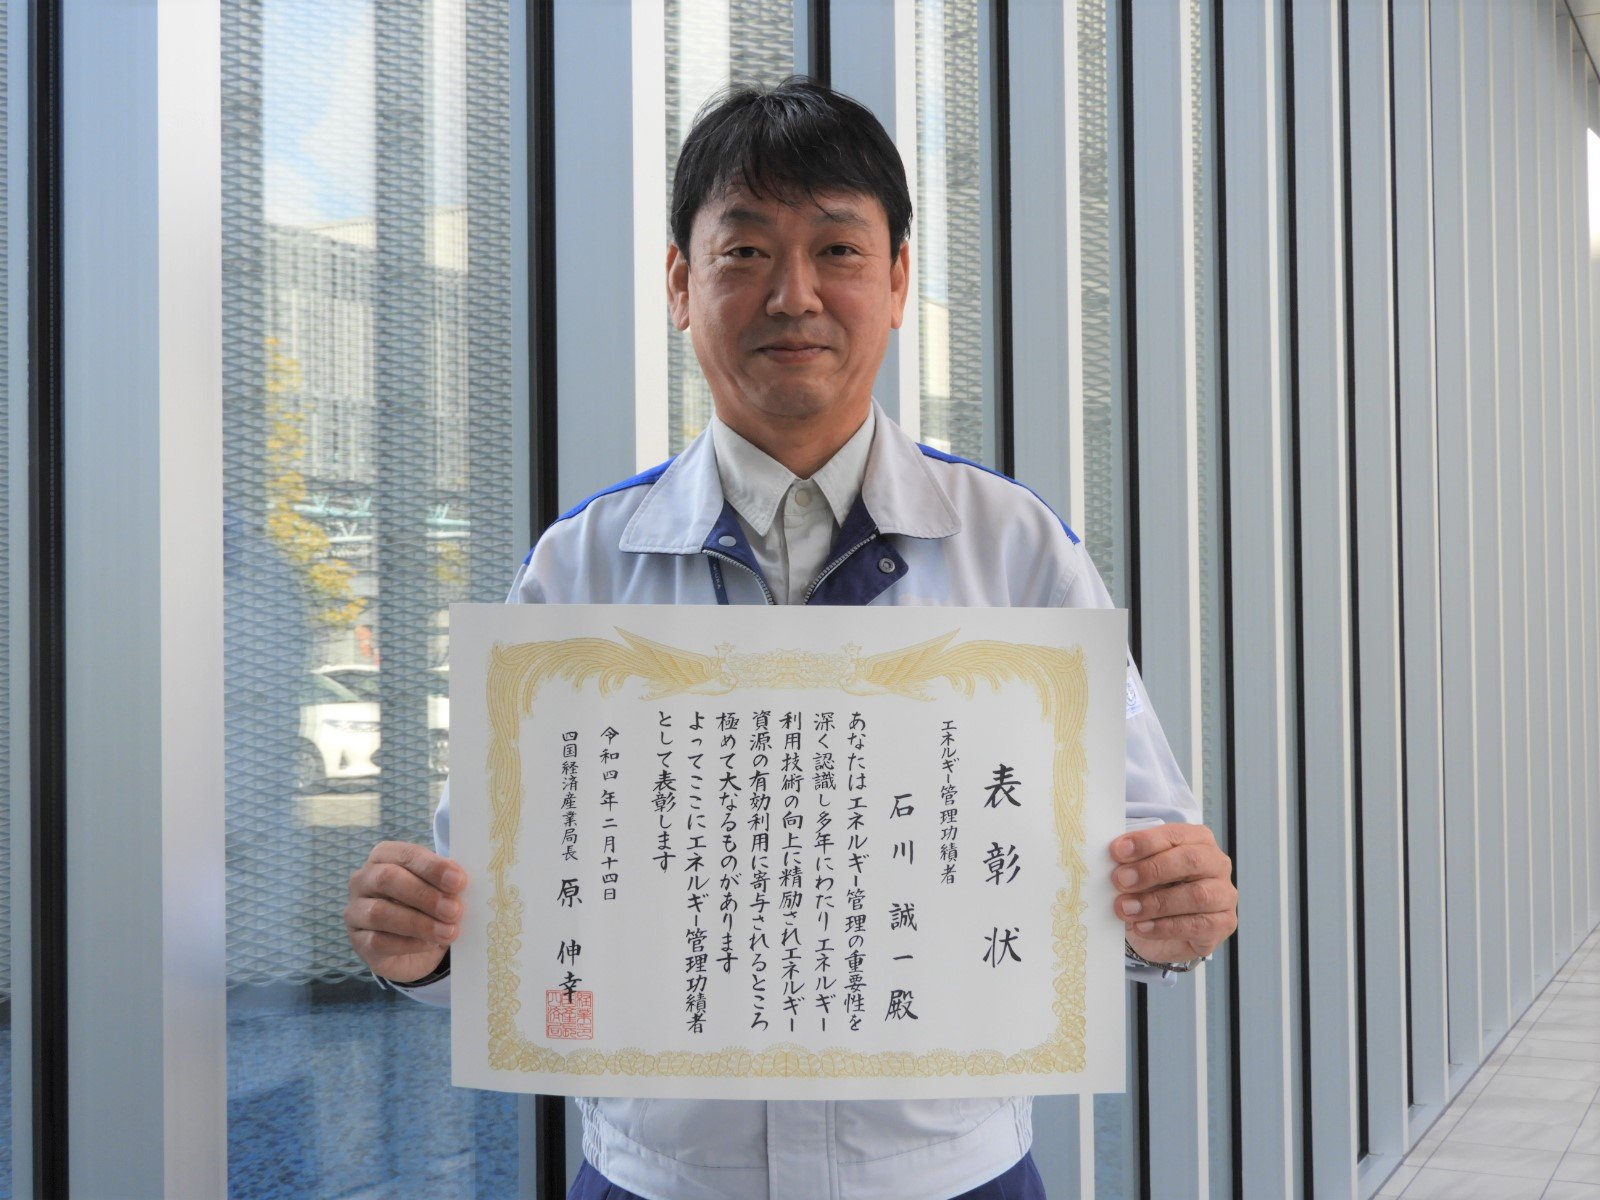 表彰状
エネルギー管理功績者
石川誠一殿
あなたはエネルギー管理の重要性を
深く認識し多年にわたりエネルギー
利用技術の向上に精励されエネルギー
資源の有効利用に寄与されるところ
極めて大なるものがあります
よってここにエネルギー管理功績者
として表彰します
令和四年二月十四日
四国経済産業局長 原 伸幸